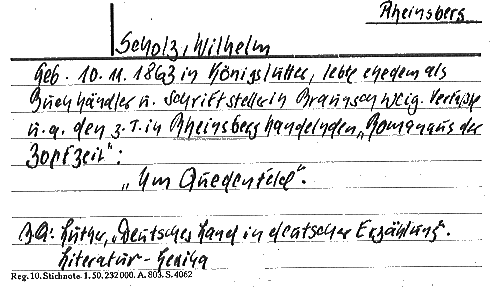 Rheinsberg
Scholz, Wilhelm
Geb. 10. 11. 1863 in Königslutter, lebte ehedem als
Buchhändler u. Schriftsteller in Braunschweig. Verfaßte
u. a. den z. T. in Rheinsberg handelnden „Roman aus der
Zopfzeit“:
„Um Quedenfeld“.
BQ: Luther, „Deutsches Land in deutscher Erzählung“.
Literatur-Lexika
Reg. 10. Stichnote. 1. 50. 232 000. A. 803. S. 4062